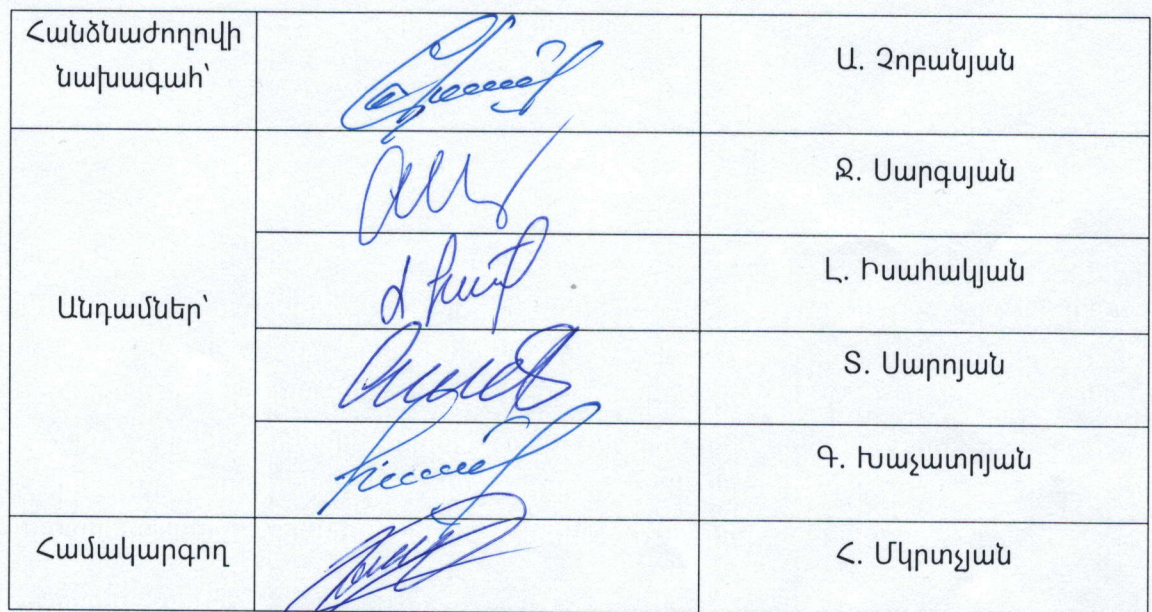 Հանձնաժողովի
նախագահ՝
Ա. Չոբանյան
Անդամներ՝
Ջ. Սարգսյան
Լ. Իսահակյան
Տ. Սարոյան
Գ. Խաչատրյան
Համակարգող
Հ. Մկրտչյան